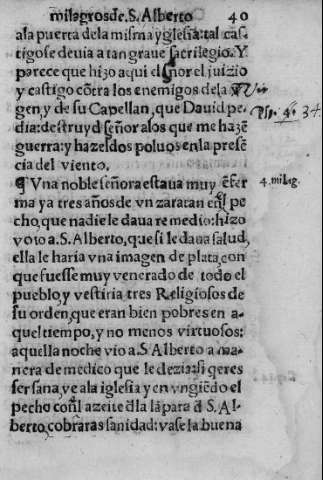 milagros de. S. Alberto 40
ala puerta dela misma yglesia: tal cas-
tigo se deuia a tan graue sacrilegio. Y
parece que hizo aqui el señor el juizio
y castigo cōtra los enemigos dela Uir
gen, y de su Capellan, que Dauid pe-
dia: destruyd señor alos que me hazē
guerra: y hazeldos poluos enla presē
cia del viento.
Psp. 34
¶ Vna noble señora estaua muy ēfer
4. milag.
ma ya tres años de vn zaratan en̄l pe
cho, que nadie le daua remedio: hizo
voto a. S. Alberto, que si le daua salud,
ella le haria vna imagen de plata, con
que fuesse muy venerado de todo el
pueblo, y vestiria tres Religiosos de
su orden, que eran bien pobres en a-
quel tiempo, y no menos virtuosos:
aquella noche vio a. S Alberto a ma-
nera de medico que le dezia: si q̄eres
ser sana, ve ala iglesia y en vngiēdo el
pecho con̄l azeite d̄la lāpara d̄ S. Al-
berto, cobraras sanidad: vase la buena